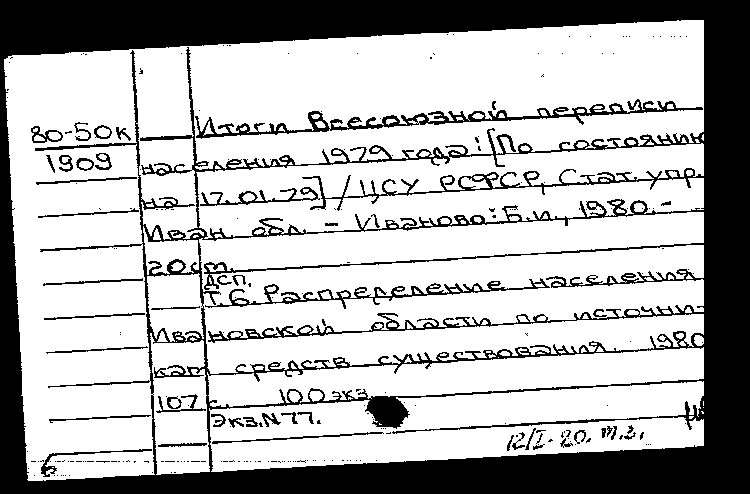 80-50к
1909
Итоги Всесоюзной переписи
населения 1979 года: [По состоянию
на 17.01.79] / ЦСУ РСФСР, Стат. упр.
Иван. обл. - Иваново: Б.и., 1980.-
20см.
ДСП.
Т.6. Распределение населения
Ивановской области по источни-
кам средств существования. 1980
107 с. 100 экз.
Экз.N77.
12/I-80. т.з.